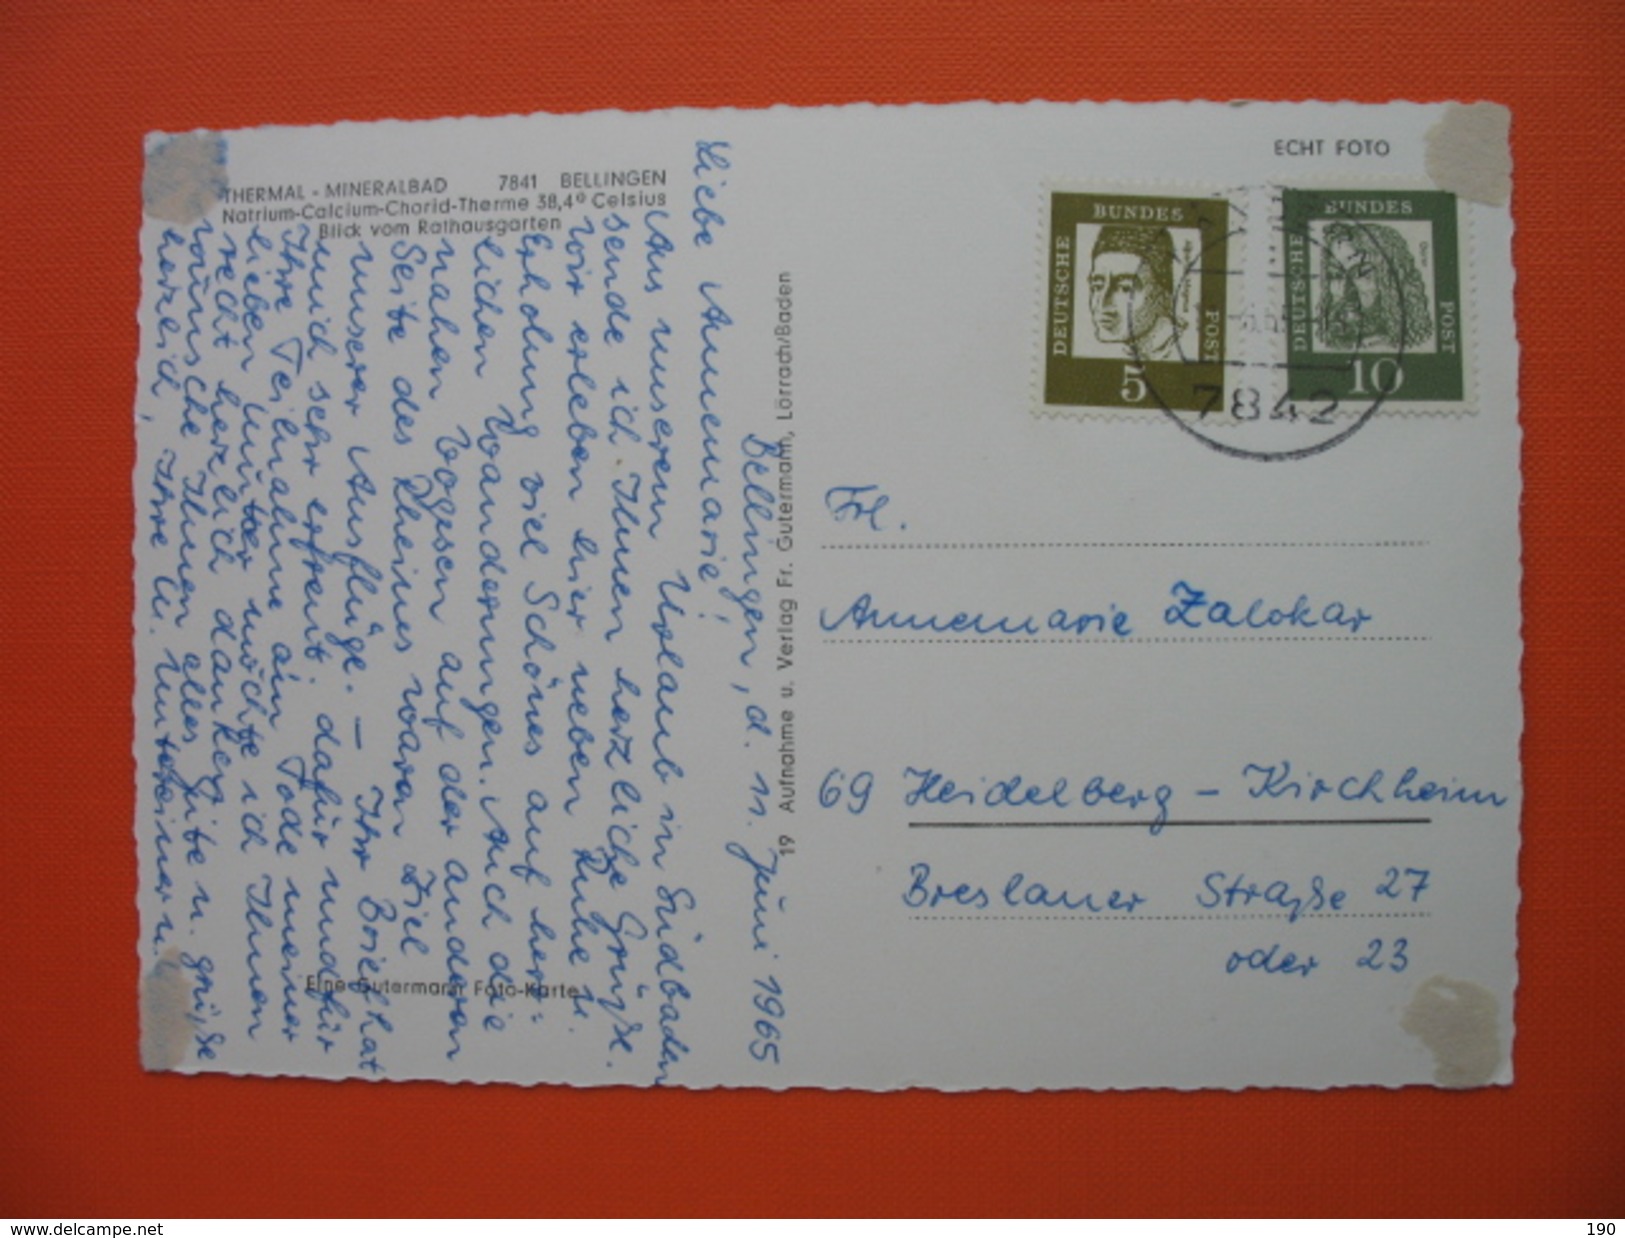 ECHT FOTO
THERMAL - MINERALBAD 7841 BELLINGEN
Natrium-Calcium-Chorid-Therme 38,4° Celsius
Blick vom Rathausgarten
Bellingen, d. 11. Juni 1965
Liebe Annemarie!
Aus unserem Urlaub in Südbaden
sende ich Ihnen herzliche Grüße.
Wir erleben hier neben Ruhe u.
Erholung viel Schönes auf herr=
lichen Wanderungen. Auch die
nahen Vogesen auf der anderen
Seite des Rheines waren Ziel
unserer Ausflüge. — Ihr Brief hat
mich sehr erfreut; dafür und für
Ihre Teilnahme am Tode meiner
lieben Mutter möchte ich Ihnen
recht herzlich danken.
wünsche Ihnen alles Gute u. grüße
herzlich, Ihre
Eine Gutermann Foto-Karte
19 Aufnahme u. Verlag Fr. Gutermann, Lörrach/Baden
DEUTSCHE BUNDES POST 5
DEUTSCHE BUNDES POST 10
Dürer
7842
Frl.
Annemarie Zalokar
69 Heidelberg - Kirchheim
Breslauer Straße 27
oder 23
www.delcampe.net
190